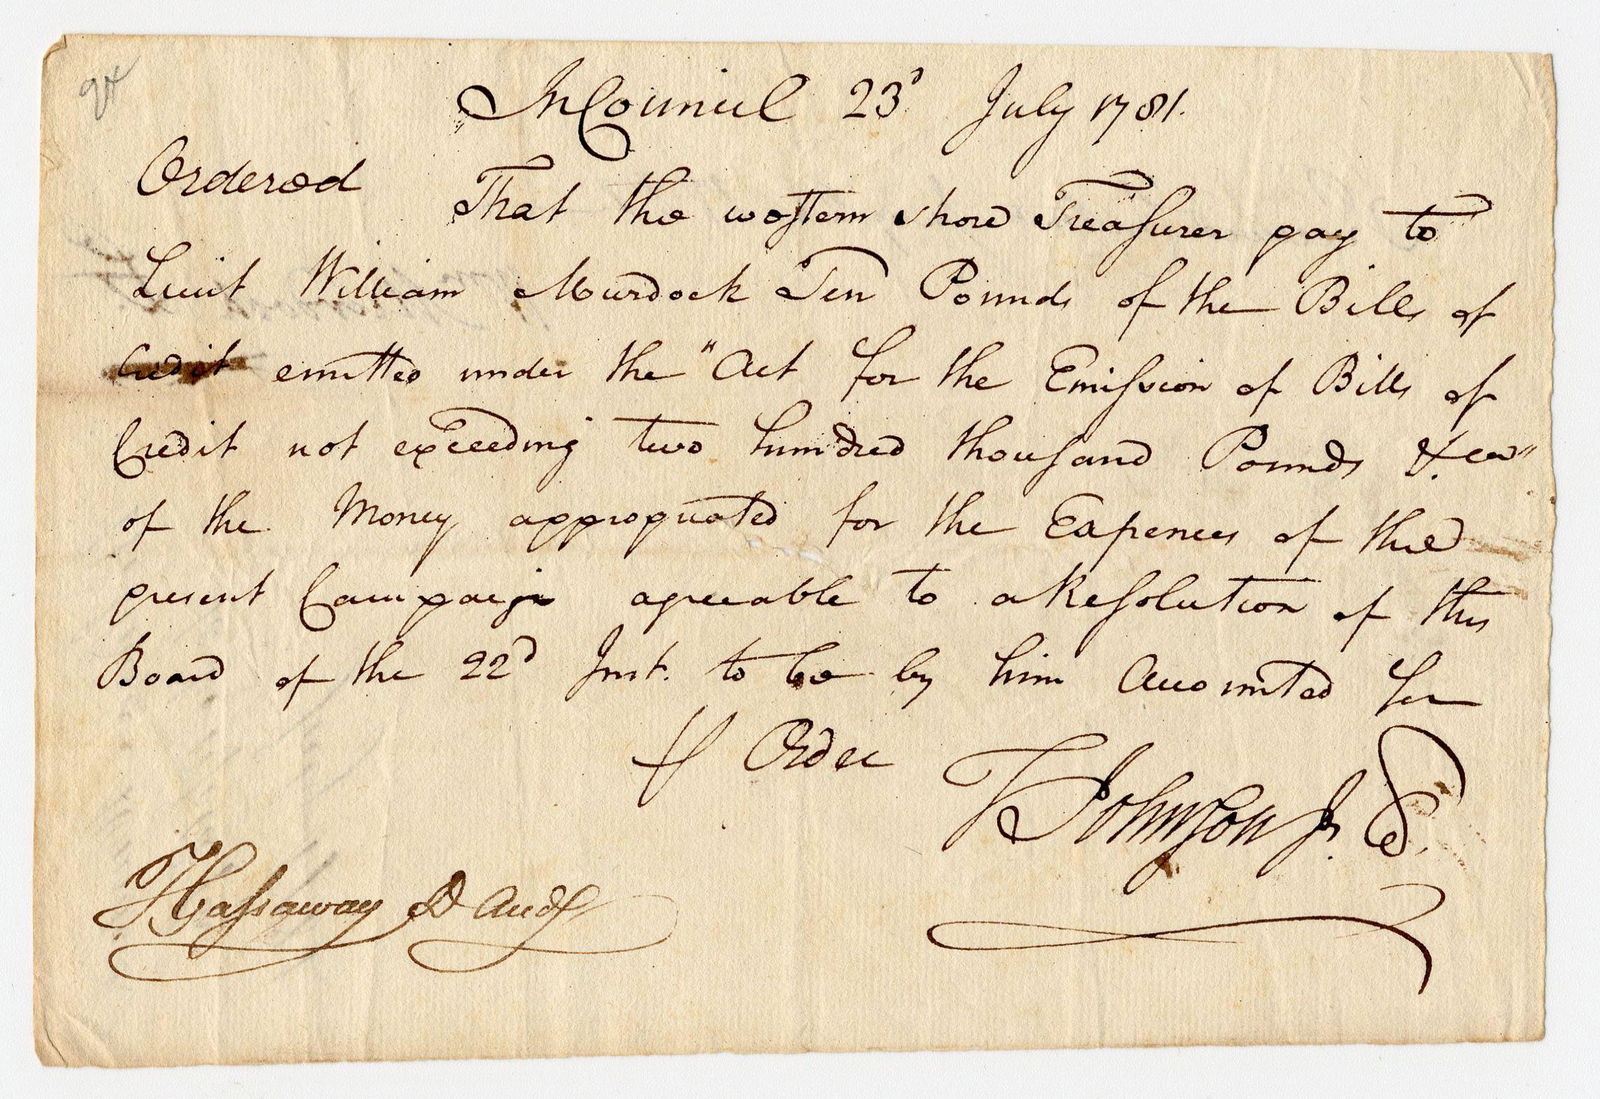 In Council 23d July 1781.
Ordered That the western shore Treasurer pay to
Lieut William Murdock Ten Pounds of the Bills of
Credit emitted under the "Act for the Emission of Bills of
Credit not exceeding two hundred thousand Pounds &ca"
of the Money appropriated for the Expences of the
present Campaign agreeable to a Resolution of this
Board of the 22d Inst. to be by him Accounted for
Order
T Johnson Jr
T Hassaway D Audr